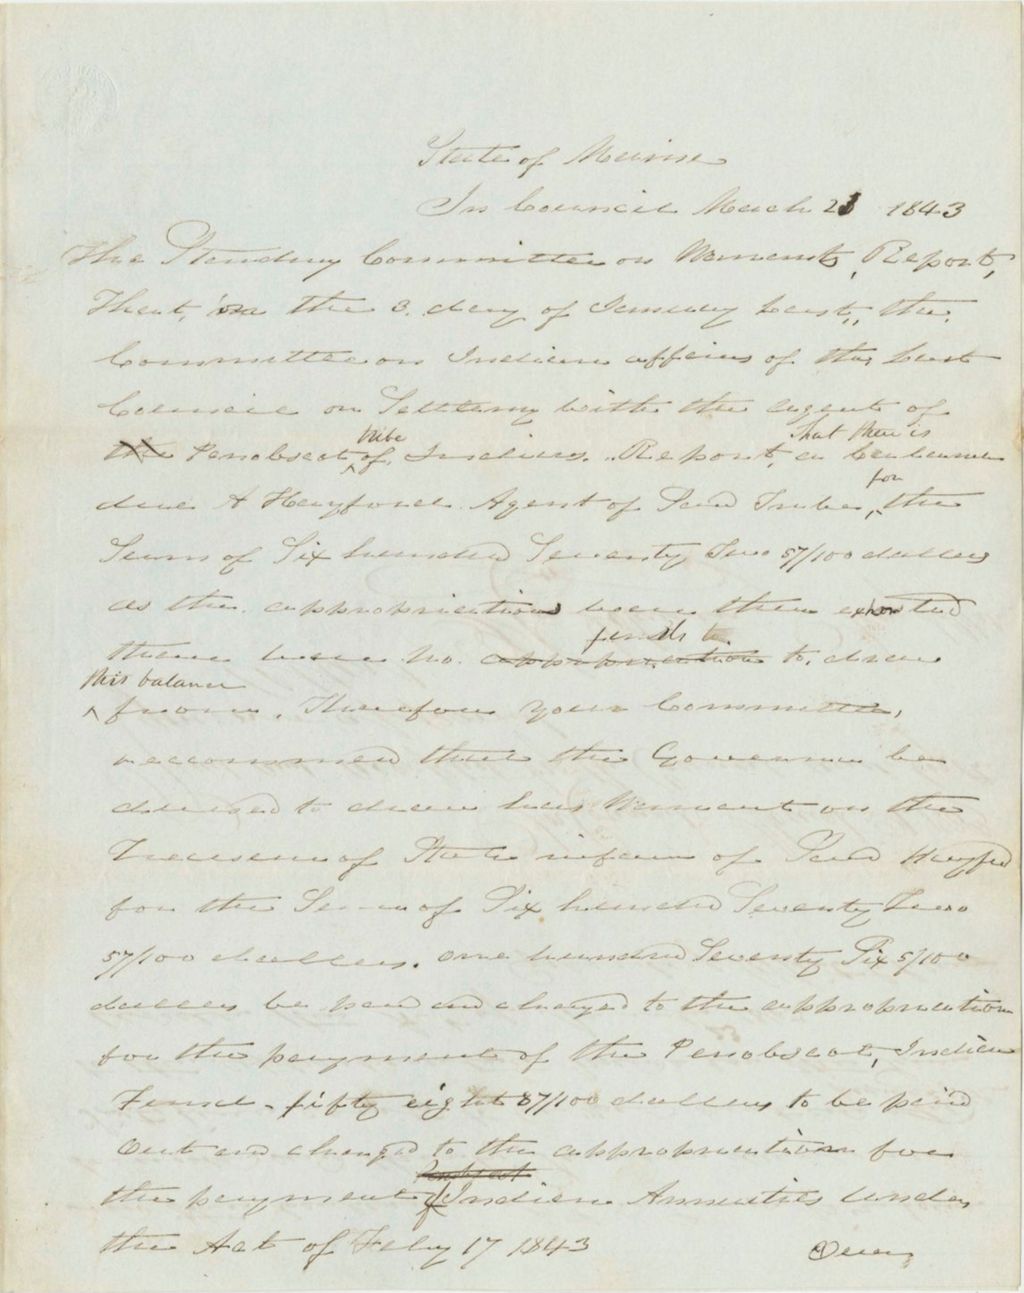 State of Maine
In Council March 23 1843
The Standing Committee on Warrants, Report,
That, on the 3. day of January last, the
Committee on Indian affairs of the last
Council on Settling with the agent of
the Penobscot tribe of Indians. Report, that there is a balance
due A Hayford Agent of Said Tribe, for the
Sum of Six hundred Seventy Two 57/100 dollars
as the appropriations were then exhausted
there were no appropriation funds to to draw
this balance from. Therefore your Committee,
reccommend that the Governor be
advised to draw his Warrant on the
Treasurer of State in favor of Said Hayford
for the Sum of Six hundred Seventy Two
57/100 dollars. One hundred Seventy Six 5/100
dollars be paid and charged to the appropriation
for the payment of the Penobscot, Indian
Fund - fifty eight 87/100 dollars to be paid
Out and charged to the appropriation for
the payment of Penobscot Indian Annuities under
the Act of Feby 17 1843 Over,